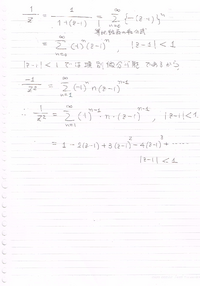 1/z = 1/(1+(z-1)) = Σ_{n=0}^{∞} {-(z-1)}^n
= Σ_{n=0}^{∞} (-1)^n (z-1)^n , |z-1| < 1
|z-1| < 1 で 項別微分 可能 であるから
-1/z² = Σ_{n=1}^{∞} (-1)^n n(z-1)^{n-1}
∴ 1/z² = Σ_{n=1}^{∞} (-1)^{n-1} · n · (z-1)^{n-1} , |z-1| < 1
= 1 - 2(z-1) + 3(z-1)² - 4(z-1)³ + ……
|z-1| < 1